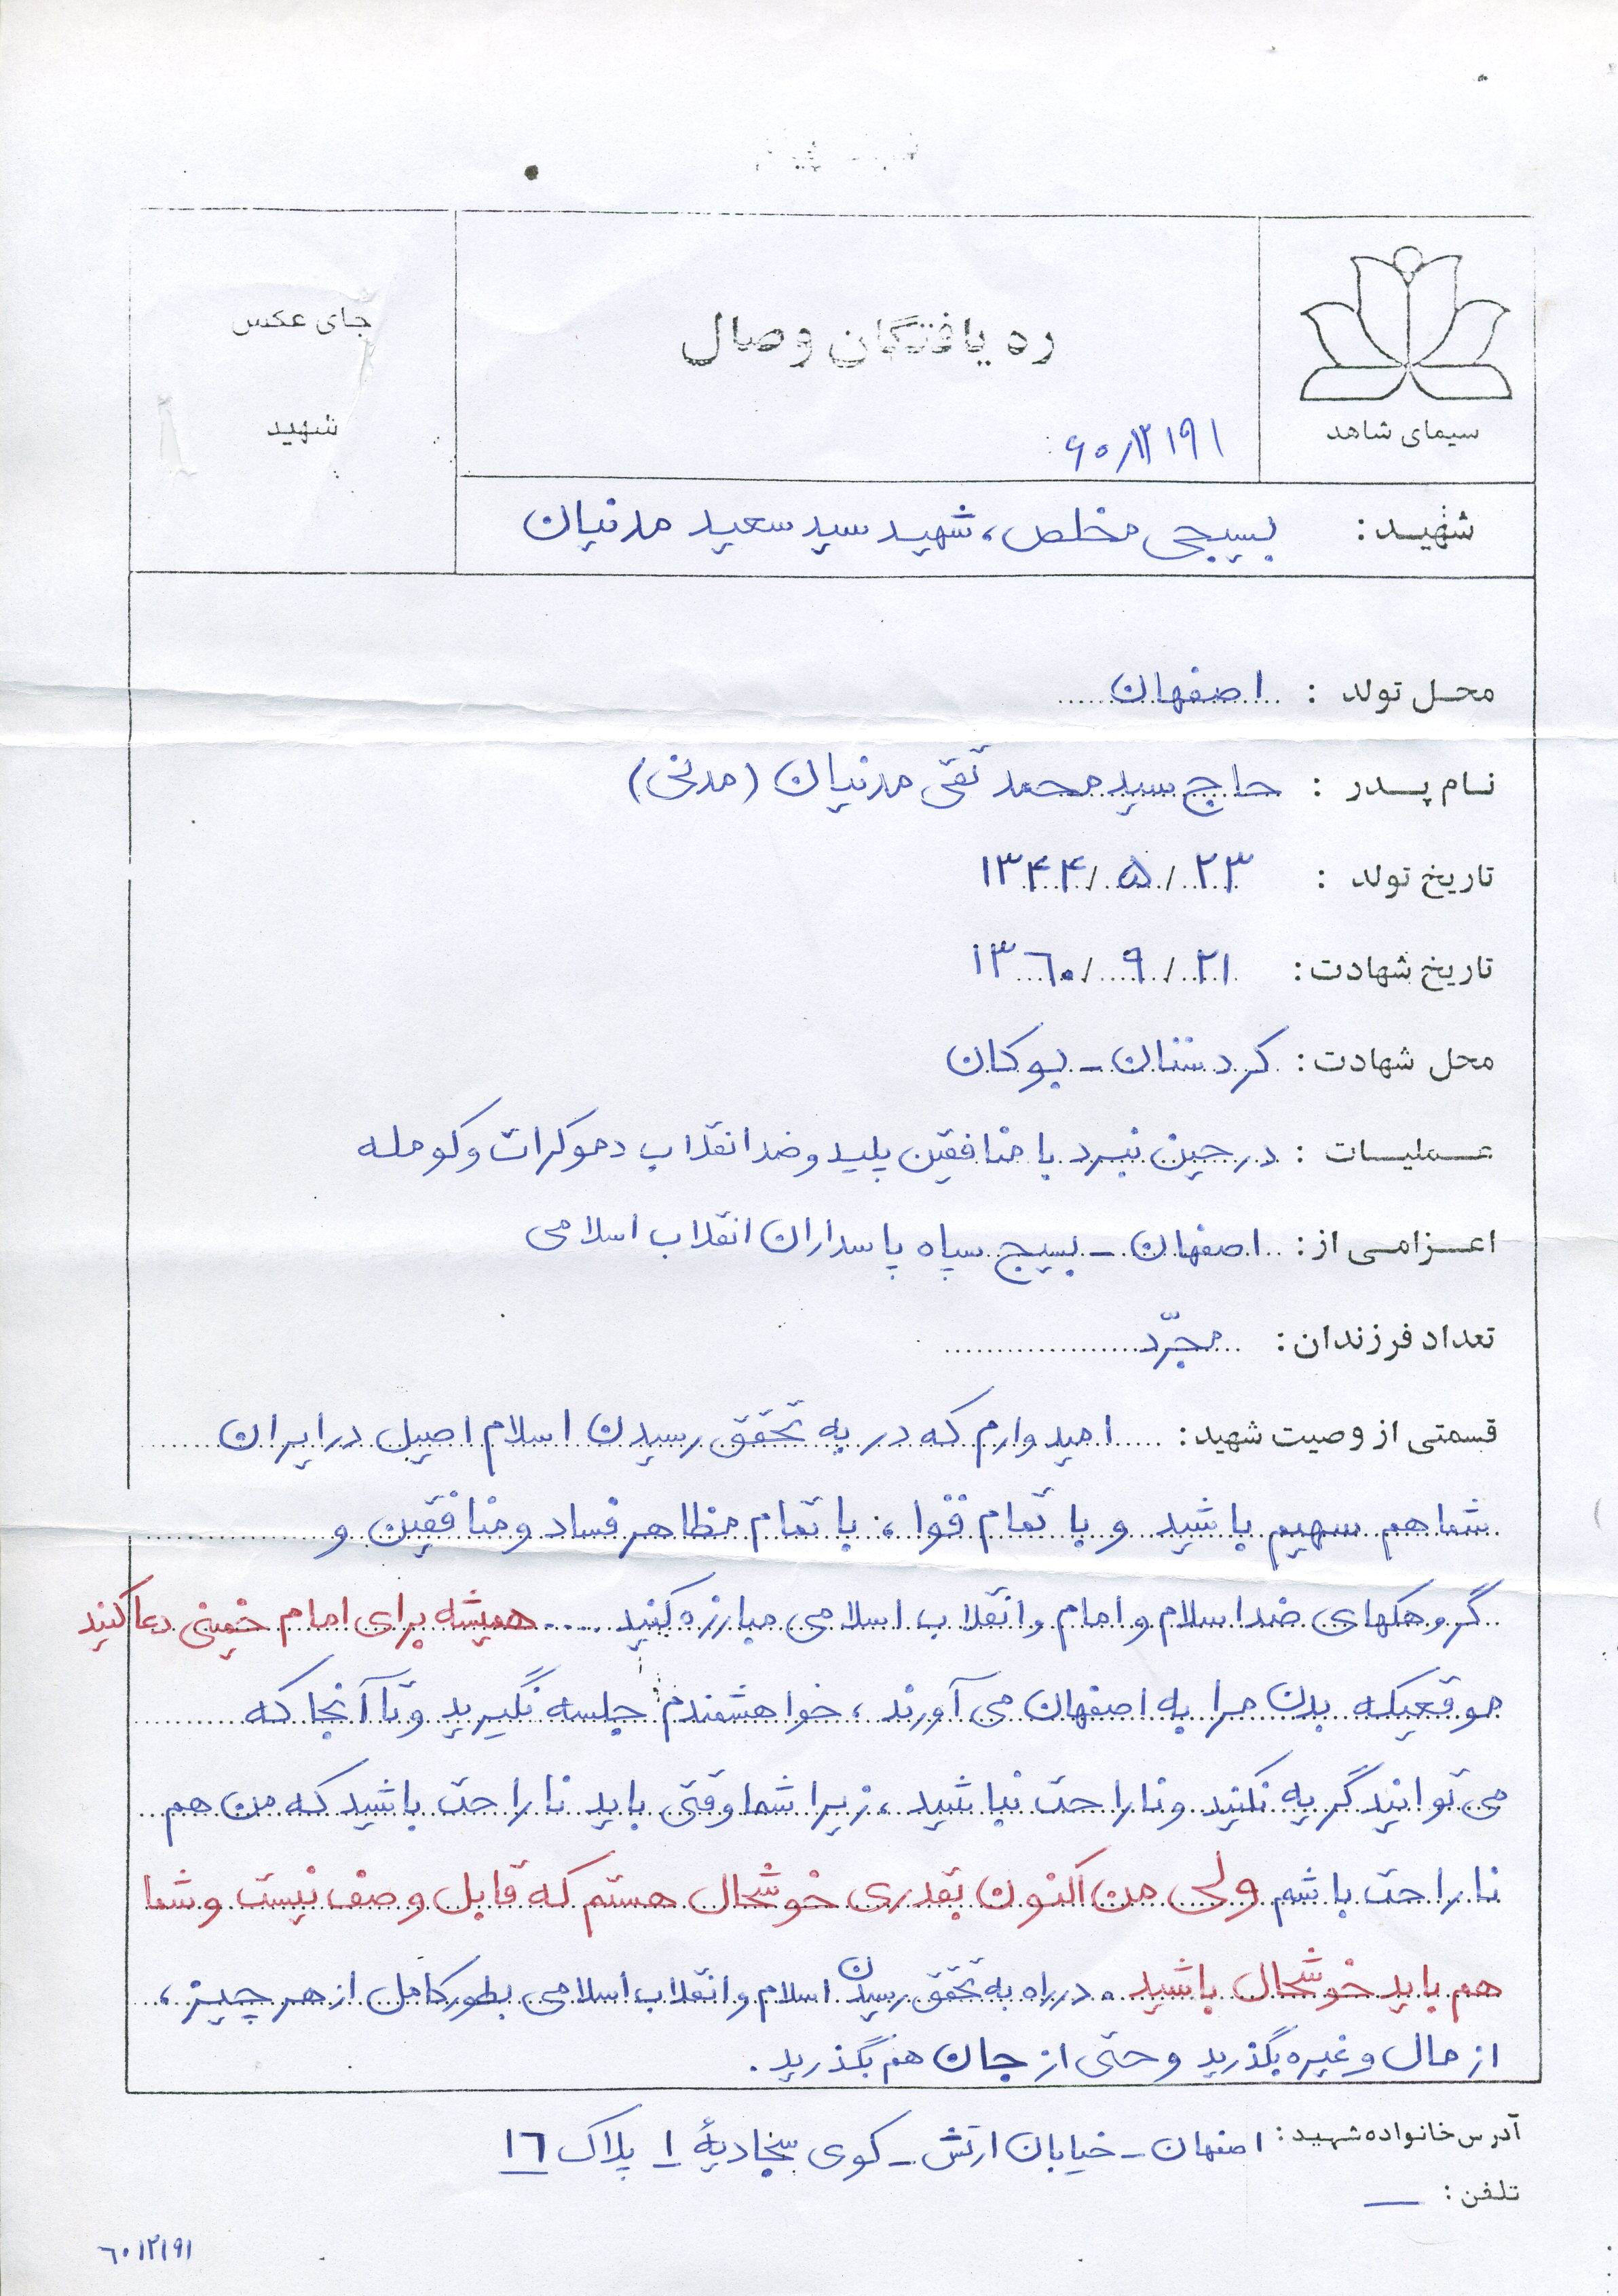 سیمای شاهد
ره یافتگان وصال
جای عکس
شهید
۶۰/۱۲۱۹۱
شهید: بسیجی مخلص، شهید سید سعید مدنیان
محل تولد : اصفهان
نام پدر : حاج سید محمد تقی مدنیان (مدنی)
تاریخ تولد : ۲۳ / ۵ / ۱۳۴۴
تاریخ شهادت: ۲۱ / ۹ / ۱۳۶۰
محل شهادت: کردستان - بوکان
عملیات : در حین نبرد با منافقین پلید و ضد انقلاب دموکرات و کومله
اعزامی از: اصفهان - بسیج سپاه پاسداران انقلاب اسلامی
تعداد فرزندان: مجرّد
قسمتی از وصیت شهید: امیدوارم که در به تحقق رسیدن اسلام اصیل در ایران
شما هم سهیم باشید و با تمام قوا، با تمام مظاهر فساد و منافقین و
گروهکهای ضد اسلام و امام و انقلاب اسلامی مبارزه کنید .... همیشه برای امام خمینی دعا کنید
موقعیکه بدن مرا به اصفهان می آورند، خواهشمندم جلسه نگیرید و تا آنجا که
می توانید گریه نکنید و ناراحت نباشید، زیرا شما وقتی باید ناراحت باشید که من هم
ناراحت باشم ولی من اکنون بقدری خوشحال هستم که قابل وصف نیست و شما
هم باید خوشحال باشید. در راه به تحقق رسیدن اسلام و انقلاب اسلامی بطور کامل از هر چیز،
از مال و غیره بگذرید و حتی از جان هم بگذرید.
آدرس خانواده شهید: اصفهان - خیابان ارتش - کوی سجادیهٔ ۱ پلاک ۱۶
تلفن : —
۶۰۱۲۱۹۱